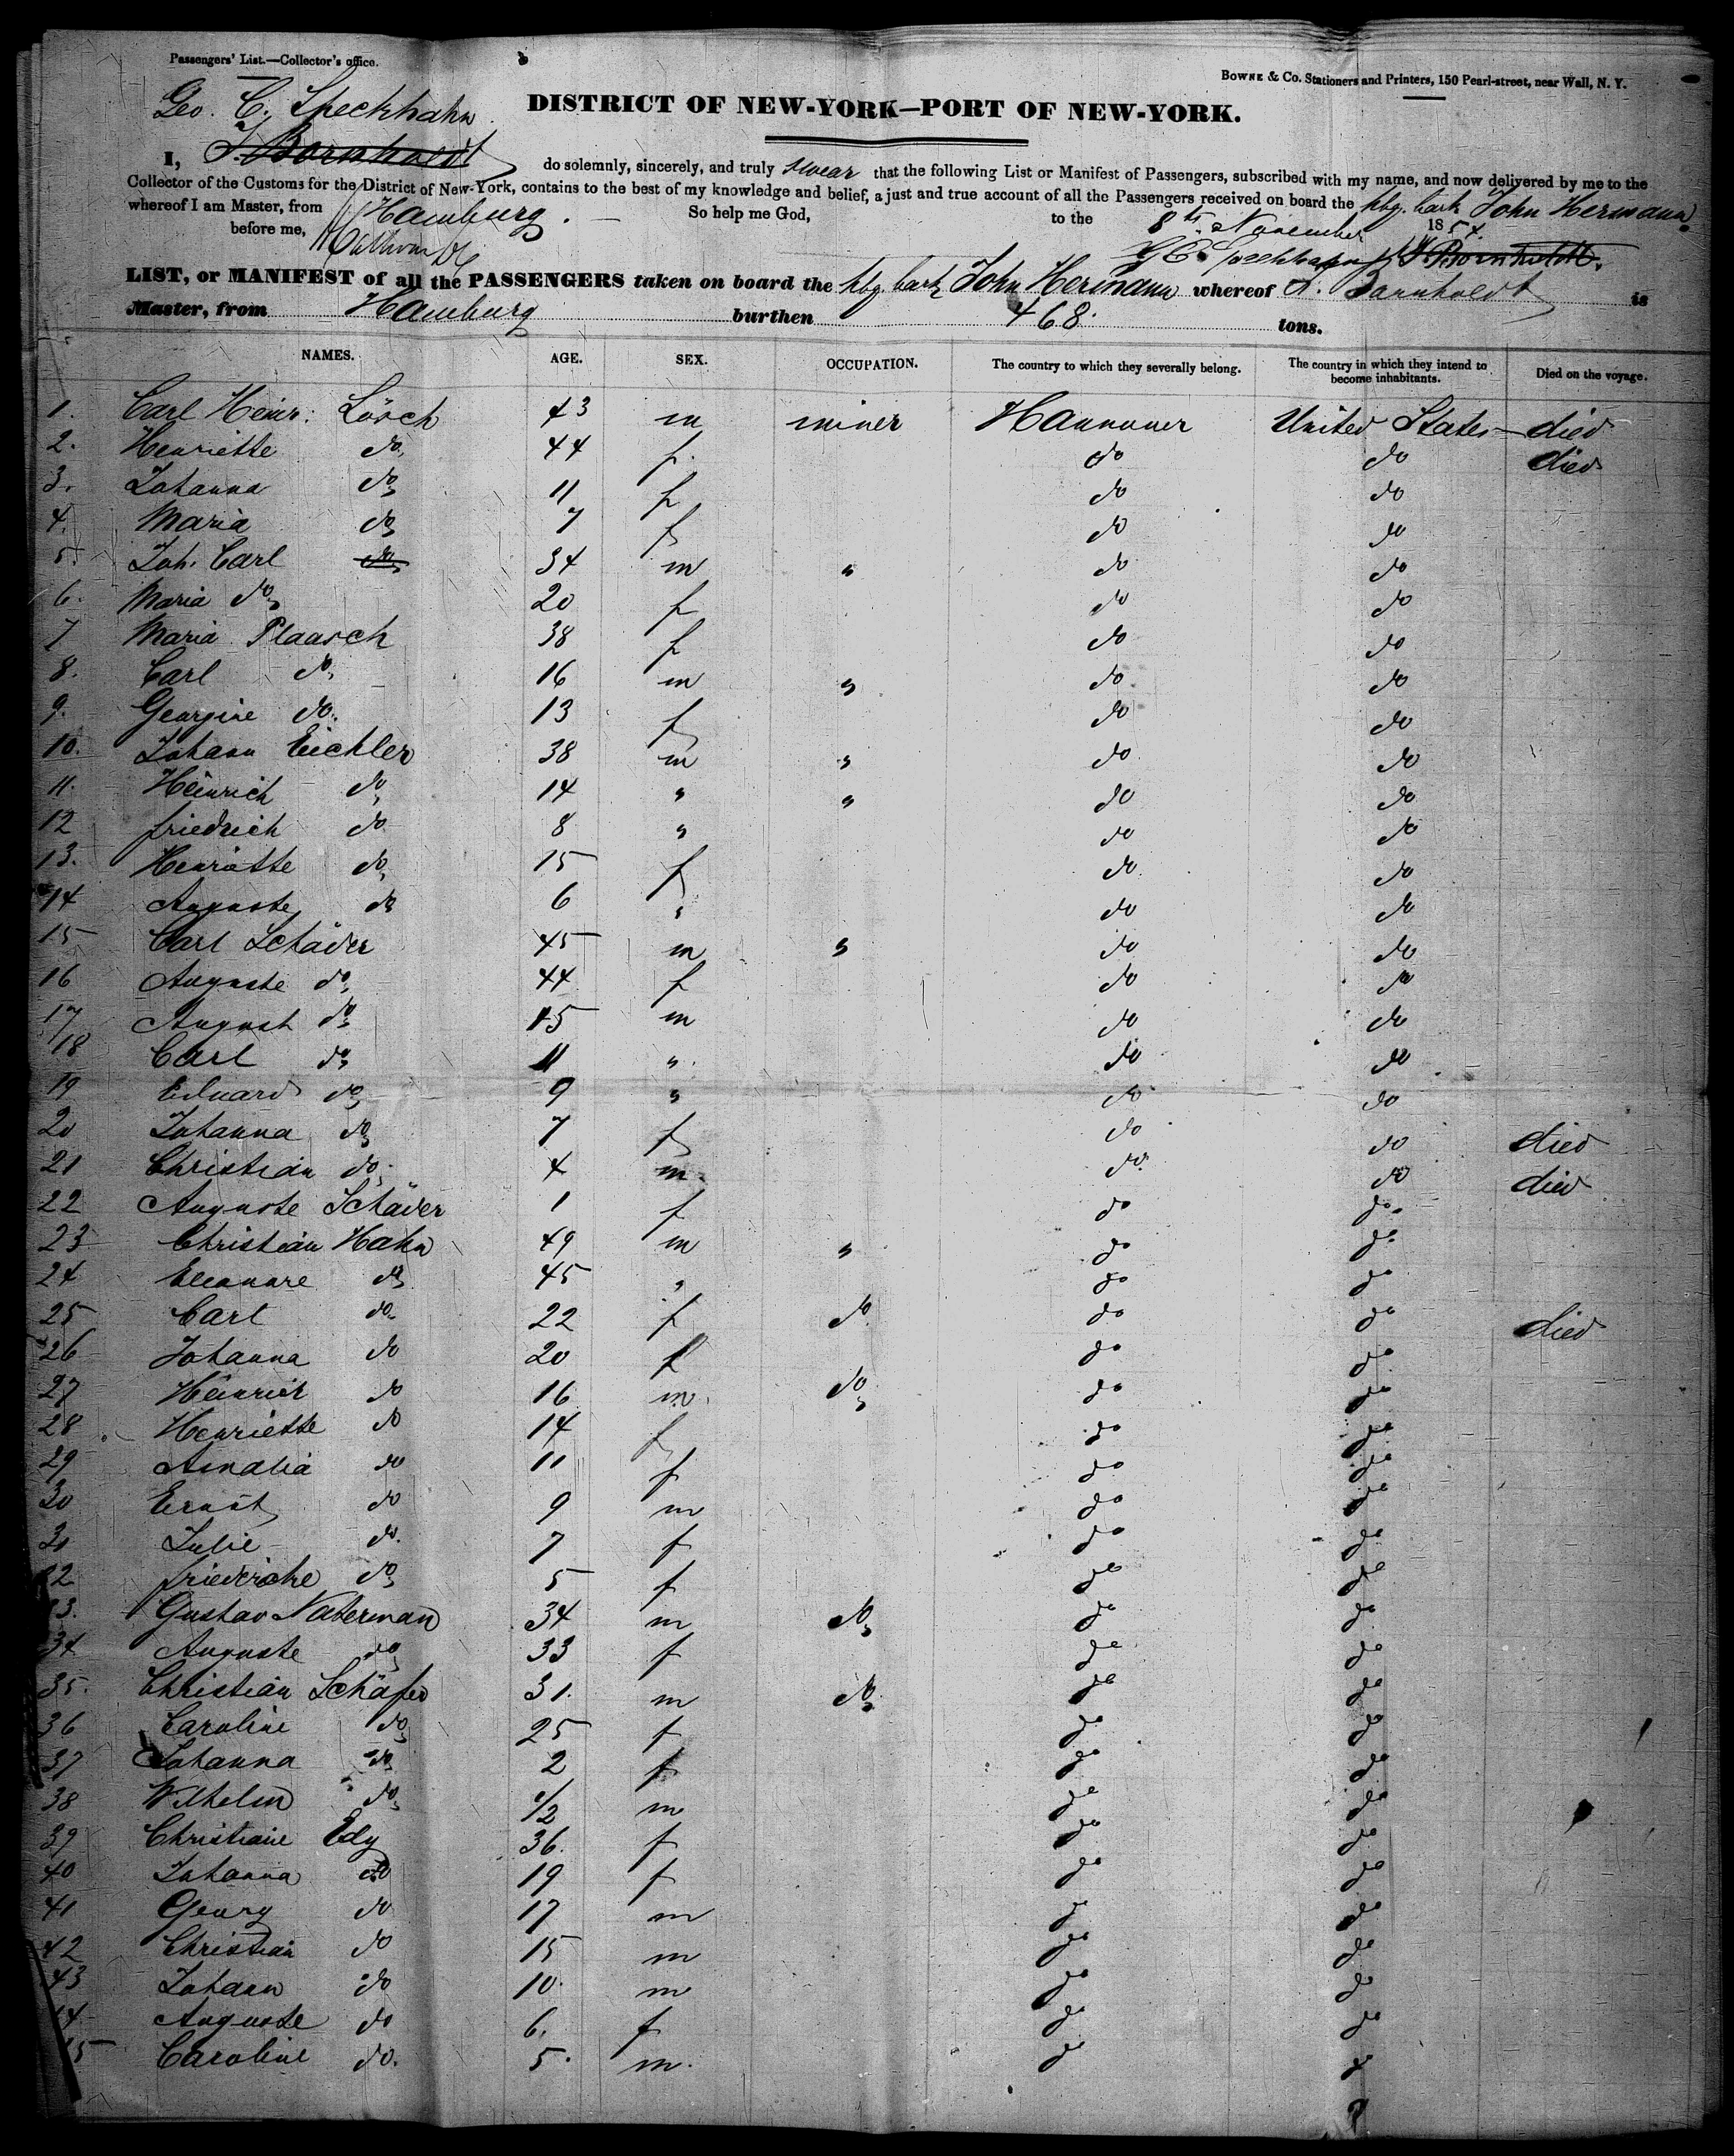 Passengers' List.—Collector's office.
BOWNE & Co. Stationers and Printers, 150 Pearl-street, near Wall, N. Y.
Geo. C. Speckhahn
DISTRICT OF NEW-YORK—PORT OF NEW-YORK.
I, J. Bornholdt do solemnly, sincerely, and truly swear that the following List or Manifest of Passengers, subscribed with my name, and now delivered by me to the
Collector of the Customs for the District of New-York, contains to the best of my knowledge and belief, a just and true account of all the Passengers received on board the hbg. bark John Hermann
whereof I am Master, from Hamburg. So help me God, to the 8th November 1854.
before me,
LIST, or MANIFEST of all the PASSENGERS taken on board the hbg. bark John Hermann whereof J. Bannholdt is
Master, from Hamburg burthen 468 tons.
NAMES. AGE. SEX. OCCUPATION. The country to which they severally belong. The country in which they intend to become inhabitants. Died on the voyage.
1. Carl Heinr: Lösch 43 m miner Hannover United States died
2. Henriette do 44 f. do do died
3. Johanna do 11 f do do
4. Maria do 7 f do do
5. Joh. Carl do 34 m " do do
6. Maria do 20 f do do
7 Maria Plaasch 38 f do do
8. Carl do 16 m " do do
9. Georgine do. 13 f do do
10. Johann Eichler 38 m " do do
11. Heinrich do 14 " " do do
12 friedrich do 8 " do do
13. Henriette do 15 f do do
14 Auguste do 6 " do do
15 Carl Schäder 45 m " do do
16 Auguste do 44 f do do
17 August do 15 m do do
18 Carl do 11 " do do
19 Eduard do 9 " do do
20 Johanna do 7 f do do died
21 Christian do 4 m do do died
22 Auguste Schäder 1 f do do
23 Christian Hahn 49 m " do do
24 Eleonore do 45 " do do
25 Carl do 22 f do do do died
26 Johanna do 20 f do do
27 Heinrich do 16 m do do do
28 Henriette do 14 f do do
29 Amalia do 11 f do do
30 Ernst do 9 m do do
31 Julie do 7 f do do
32 friedericke do 5 f do do
33. Gustav Naterman 34 m do do do
34 Auguste do 33 f do do
35. Christian Schäfer 31. m do do do
36 Caroline do 25 f do do
37 Johanna do 2 f do do
38 Wilhelm do 1/2 m do do
39 Christiane Edy 36. f do do
40 Johanna do 19 f do do
41 Georg do 17 m do do
42 Christian do 15 m do do
43 Johann do 10. m do do
44 Auguste do 6. f do do
45 Caroline do. 5. m. do do